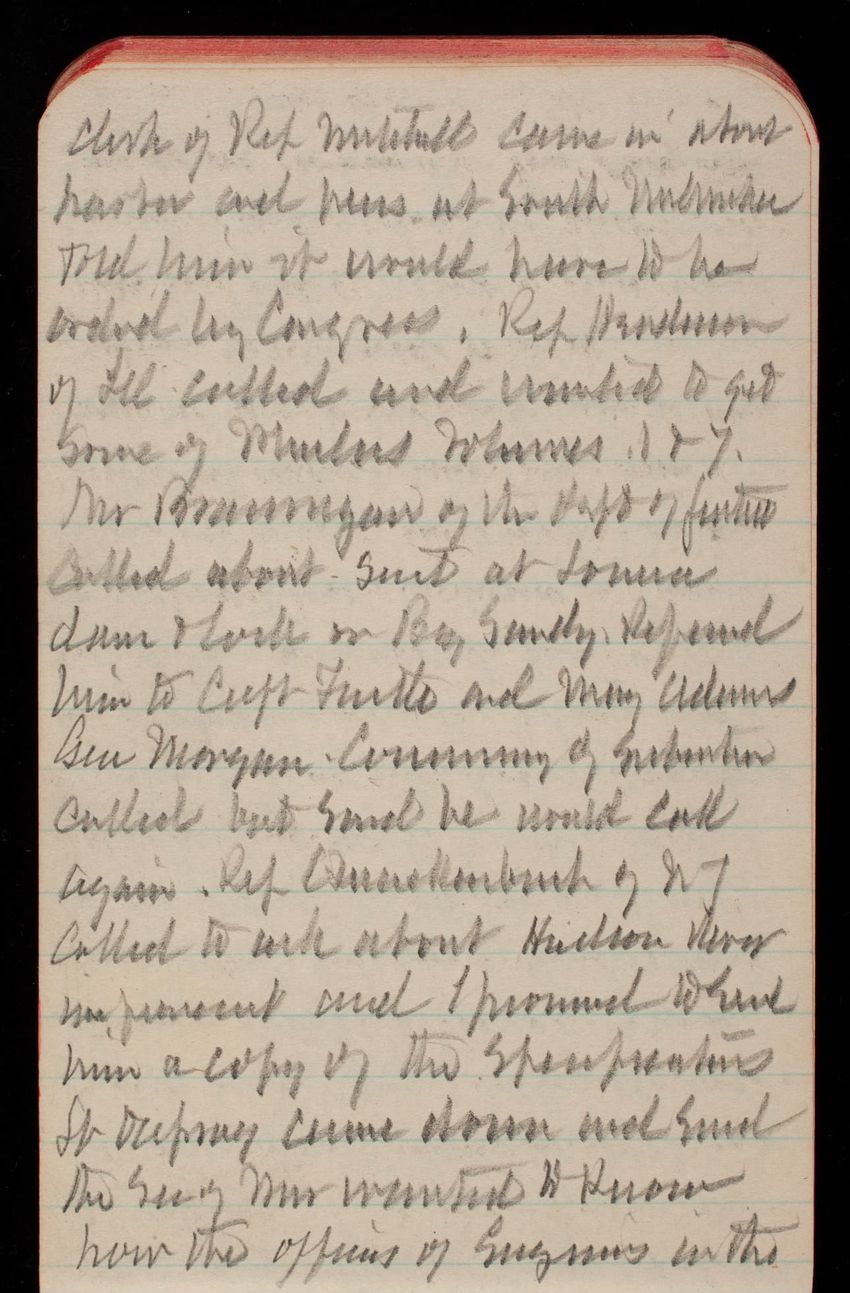 Clerk of Rep Mitchell came in about
harbor and piers at South Milwaukee
Told him it would have to be
ordrd by Congress. Rep Henderson
of Ill called and wanted to get
some of volumes 1 & 7.
Mr Brannegan of the Dept of Justice
called about suit at Louisa
dam & lock on Big Sandy. Referred
him to Capt Tuttle and Maj Adams
Gen Morgan Commny of Subsistence
called but said he would call
again. Rep Quackenbush of NY
called to ask about Hudson River
improvement and I promised to send
him a copy of the specifications
Lt came down and said
the Sec of War wanted to know
how the officers of Engineers in the